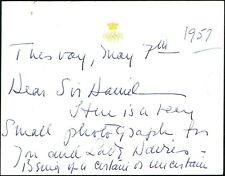 1957
Thesday, May 7th
Dear Sir Daniel
Here is a very
small photograph for
you and Lady Davies -
is one of a certain or uncertain